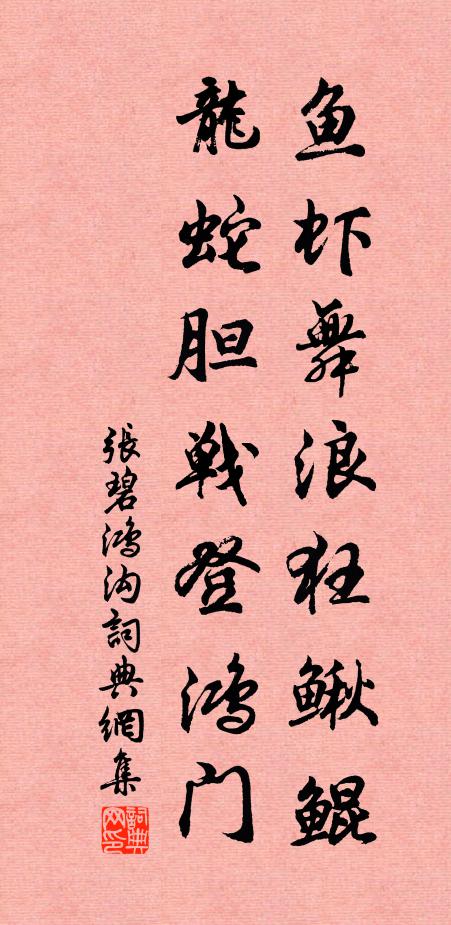 鱼虾舞浪狂鳅鲲
龍蛇胆戦登鸿门
張碧鸿沟詞典網集
詞典网印